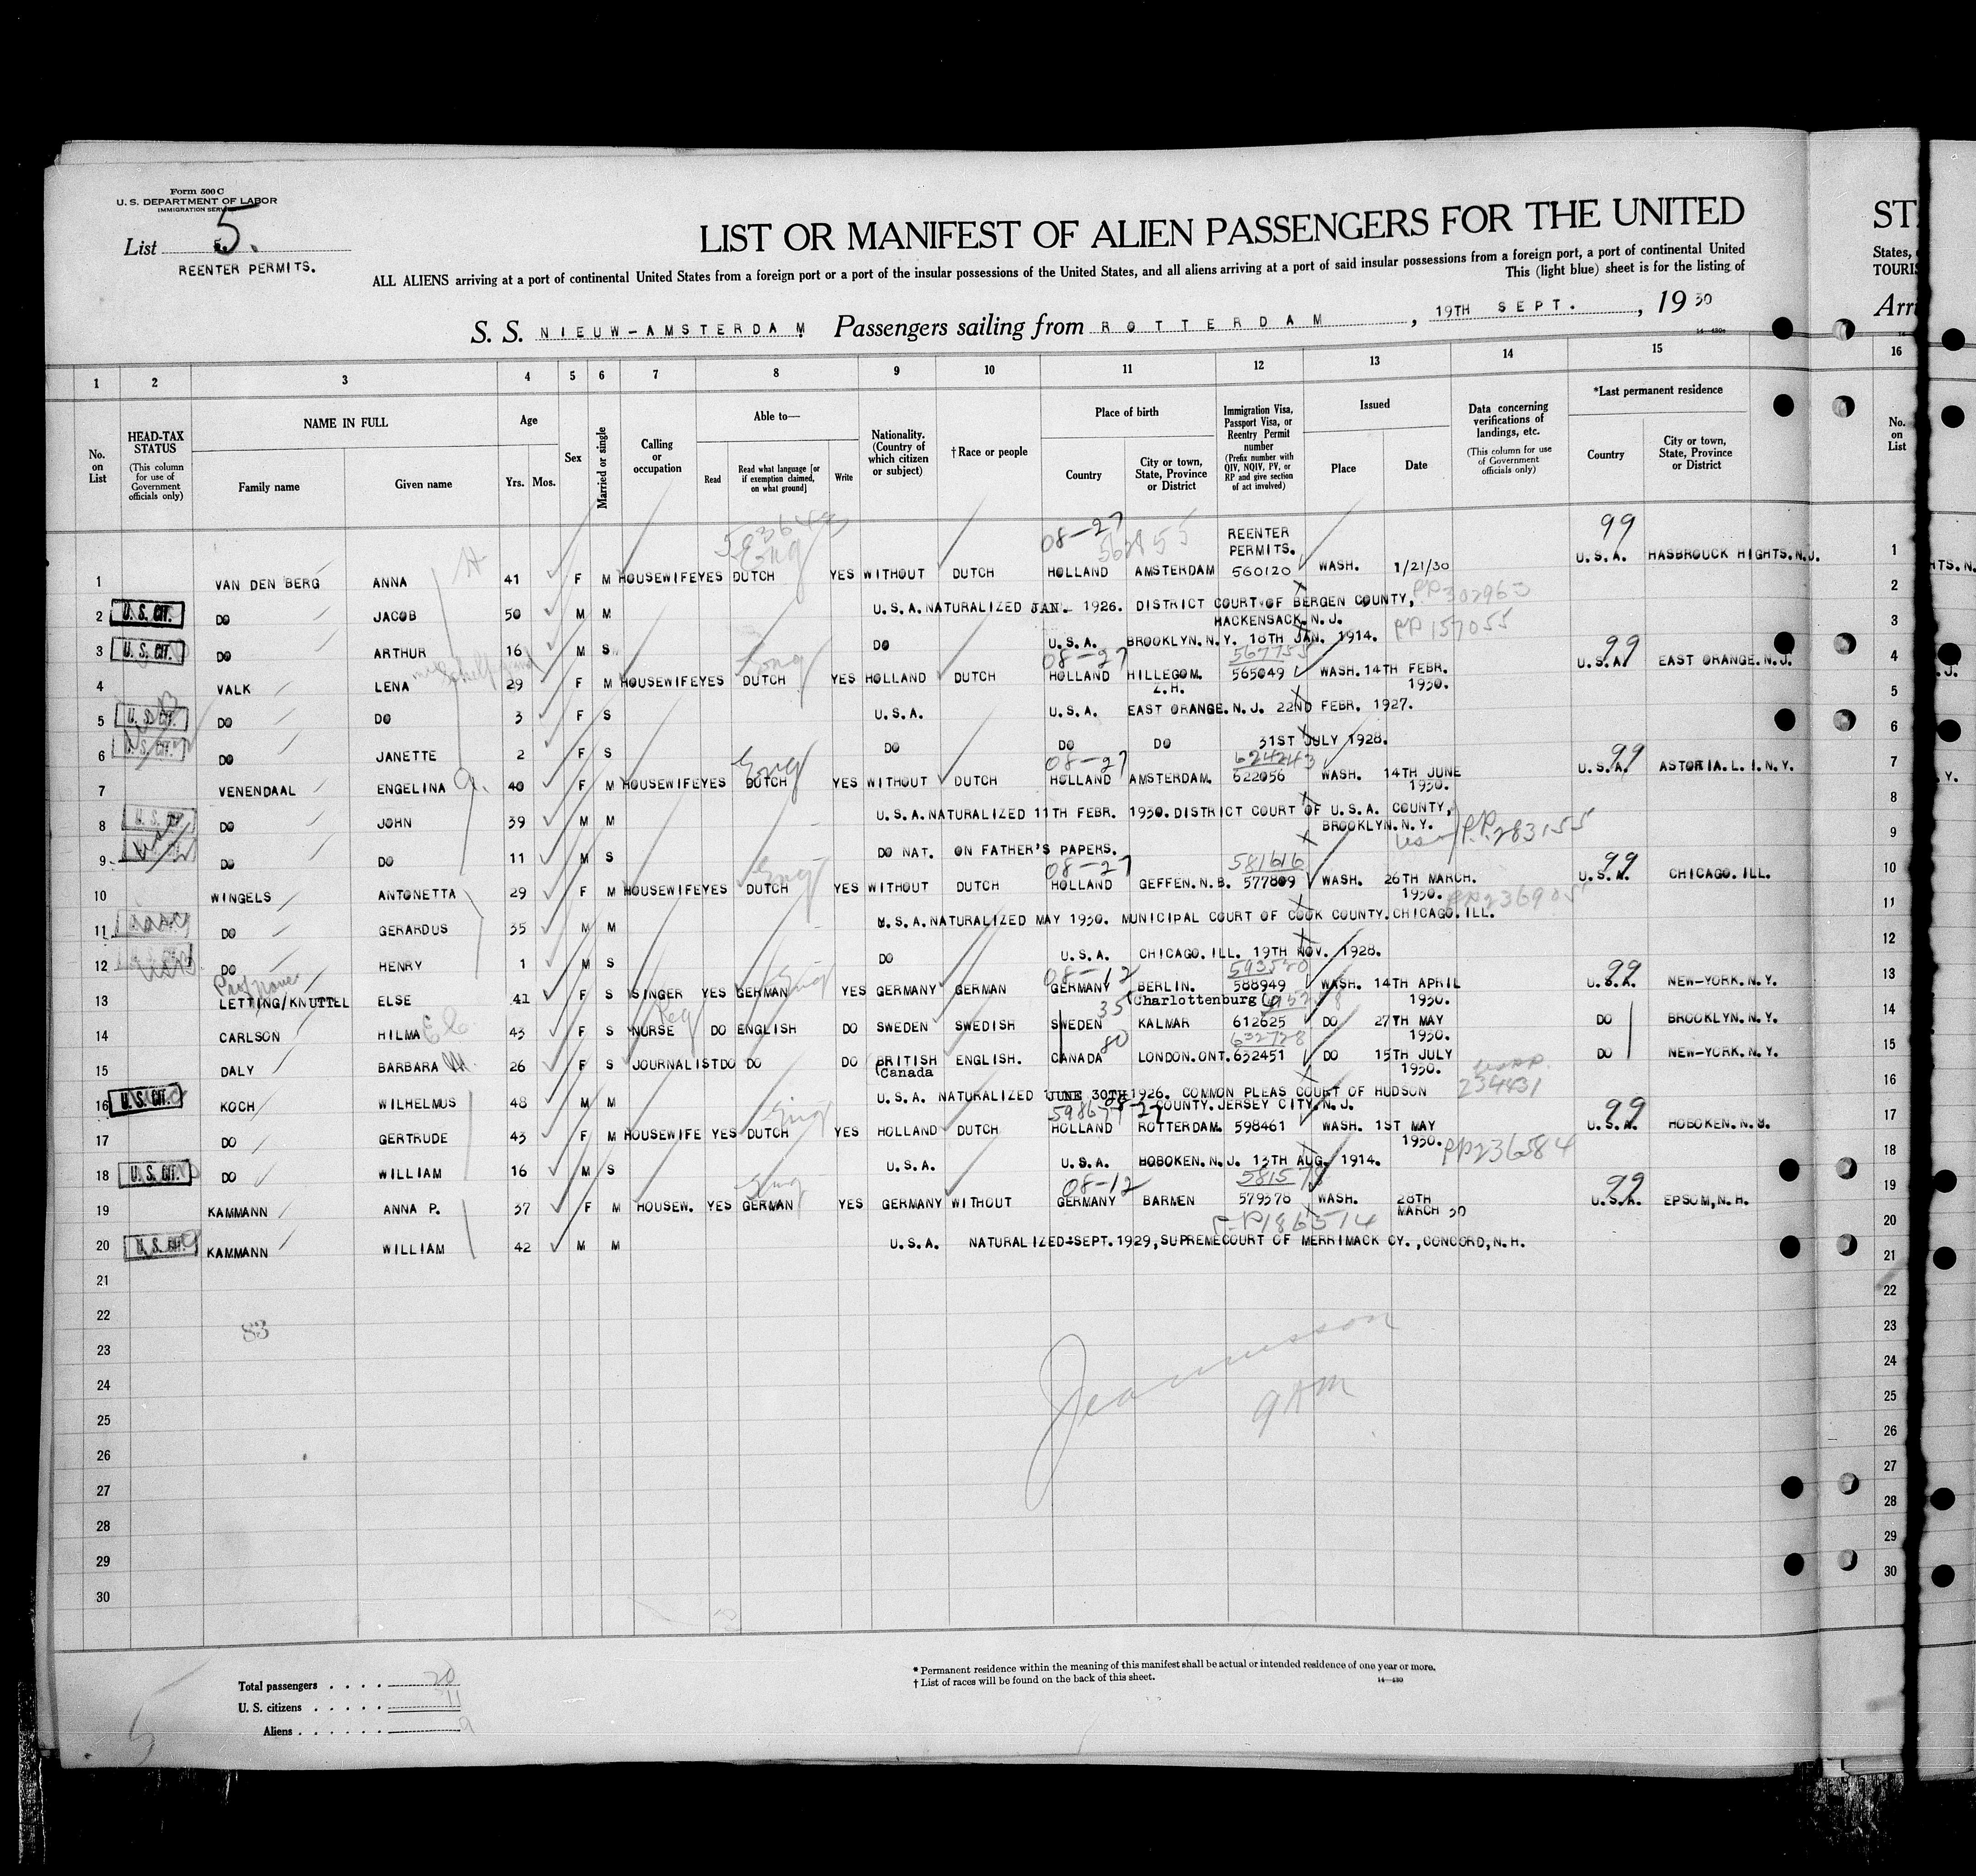 Form 500 C
U. S. DEPARTMENT OF LABOR
IMMIGRATION SERV
List 5.
REENTER PERMITS.
LIST OR MANIFEST OF ALIEN PASSENGERS FOR THE UNITED
ALL ALIENS arriving at a port of continental United States from a foreign port or a port of the insular possessions of the United States, and all aliens arriving at a port of said insular possessions from a foreign port, a port of continental United
This (light blue) sheet is for the listing of
S. S. NIEUW-AMSTERDAM. Passengers sailing from ROTTERDAM, 19TH SEPT., 19 30
ST
States,
TOURIS
Arri
1 2 3 4 5 6 7 8 9 10 11 12 13 14 15 16
No. on List
HEAD-TAX STATUS
(This column for use of Government officials only)
NAME IN FULL
Family name Given name
Age
Yrs. Mos.
Sex
Married or single
Calling or occupation
Able to—
Read Read what language [or if exemption claimed, on what ground] Write
Nationality. (Country of which citizen or subject)
†Race or people
Place of birth
Country City or town, State, Province or District
Immigration Visa, Passport Visa, or Reentry Permit number
(Prefix number with QIV, NQIV, PV, or RP and give section of act involved)
Issued
Place Date
Data concerning verifications of landings, etc.
(This column for use of Government officials only)
*Last permanent residence
Country City or town, State, Province or District
No. on List
08-27 REENTER PERMITS. 99
1 VAN DEN BERG ANNA 41 F M HOUSEWIFE YES DUTCH Eng YES WITHOUT DUTCH HOLLAND AMSTERDAM 560120 WASH. 1/21/30 U.S.A. HASBROUCK HIGHTS.N.J. 1
2 U.S. CIT. DO JACOB 50 M M U.S.A. NATURALIZED JAN. 1926. DISTRICT COURT OF BERGEN COUNTY, PP302963 2
HACKENSACK.N.J.
3 U.S. CIT. DO ARTHUR 16 M S DO U.S.A. BROOKLYN.N.Y. 18TH JAN. 1914. PP157055 3
08-27 567755 99
4 VALK LENA 29 F M HOUSEWIFE YES DUTCH Eng YES HOLLAND DUTCH HOLLAND HILLEGOM. Z.H. 565049 WASH. 14TH FEBR. 1930. U.S.A. EAST ORANGE.N.J. 4
5 U.S. CIT. DO DO 3 F S U.S.A. U.S.A. EAST ORANGE.N.J. 22ND FEBR. 1927. 5
6 U.S. CIT. DO JANETTE 2 F S DO DO DO 31ST JULY 1928. 6
08-27 624243 99
7 VENENDAAL ENGELINA A. 40 F M HOUSEWIFE YES DUTCH Eng YES WITHOUT DUTCH HOLLAND AMSTERDAM. 622056 WASH. 14TH JUNE 1930. U.S.A. ASTORIA.L.I.N.Y. 7
8 U.S. CIT. DO JOHN 39 M M U.S.A. NATURALIZED 11TH FEBR. 1930. DISTRICT COURT OF U.S.A. COUNTY, 8
BROOKLYN.N.Y. PP.283155
9 DO DO 11 M S DO NAT. ON FATHER'S PAPERS. 9
08-27 581616 99
10 WINGELS ANTONETTA 29 F M HOUSEWIFE YES DUTCH Eng YES WITHOUT DUTCH HOLLAND GEFFEN.N.B. 577809 WASH. 26TH MARCH. 1930. U.S.A. CHICAGO.ILL. 10
11 DO GERARDUS 35 M M U.S.A. NATURALIZED MAY 1930. MUNICIPAL COURT OF COOK COUNTY.CHICAGO.ILL. PP236905 11
12 DO HENRY 1 M S DO U.S.A. CHICAGO.ILL. 19TH NOV. 1928. 12
08-12 593520 99
13 LETTING/KNUTTEL ELSE 41 F S SINGER YES GERMAN Eng YES GERMANY GERMAN GERMANY BERLIN. (Charlottenburg) 588949 WASH. 14TH APRIL 1930. U.S.A. NEW-YORK.N.Y. 13
35
14 CARLSON HILMA E C 43 F S NURSE DO ENGLISH DO SWEDEN SWEDISH SWEDEN KALMAR 612625 DO 27TH MAY 1930. DO BROOKLYN.N.Y. 14
80 632728
15 DALY BARBARA M. 26 F S JOURNALIST DO DO DO BRITISH (Canada ENGLISH. CANADA LONDON.ONT. 632451 DO 15TH JULY 1930. DO NEW-YORK.N.Y. 15
16 U.S. CIT. KOCH WILHELMUS 48 M M U.S.A. NATURALIZED JUNE 30TH 1926. COMMON PLEAS COURT OF HUDSON 234431 16
COUNTY.JERSEY CITY.N.J.
99
17 DO GERTRUDE 43 F M HOUSEWIFE YES DUTCH Eng YES HOLLAND DUTCH HOLLAND ROTTERDAM. 598461 WASH. 1ST MAY 1930. U.S.A. HOBOKEN.N.J. 17
18 U.S. CIT. DO WILLIAM 16 M S U.S.A. U.S.A. HOBOKEN.N.J. 13TH AUG. 1914. PP236584 18
08-12 99
19 KAMMANN ANNA P. 37 F M HOUSEW. YES GERMAN Eng YES GERMANY WITHOUT GERMANY BARMEN 579378 WASH. 28TH MARCH 30 U.S.A. EPSOM,N.H. 19
P.P186514
20 U.S. CIT. KAMMANN WILLIAM 42 M M U.S.A. NATURALIZED-SEPT.1929,SUPREMECOURT OF MERRIMACK CY.,CONCORD,N.H. 20
21 21
22 22
83
23 23
24 24
25 25
9 AM
26 26
27 27
28 28
29 29
30 30
Total passengers . . . . 20
U. S. citizens . . . . . 11
Aliens . . . . . . 9
* Permanent residence within the meaning of this manifest shall be actual or intended residence of one year or more.
† List of races will be found on the back of this sheet.
14—430